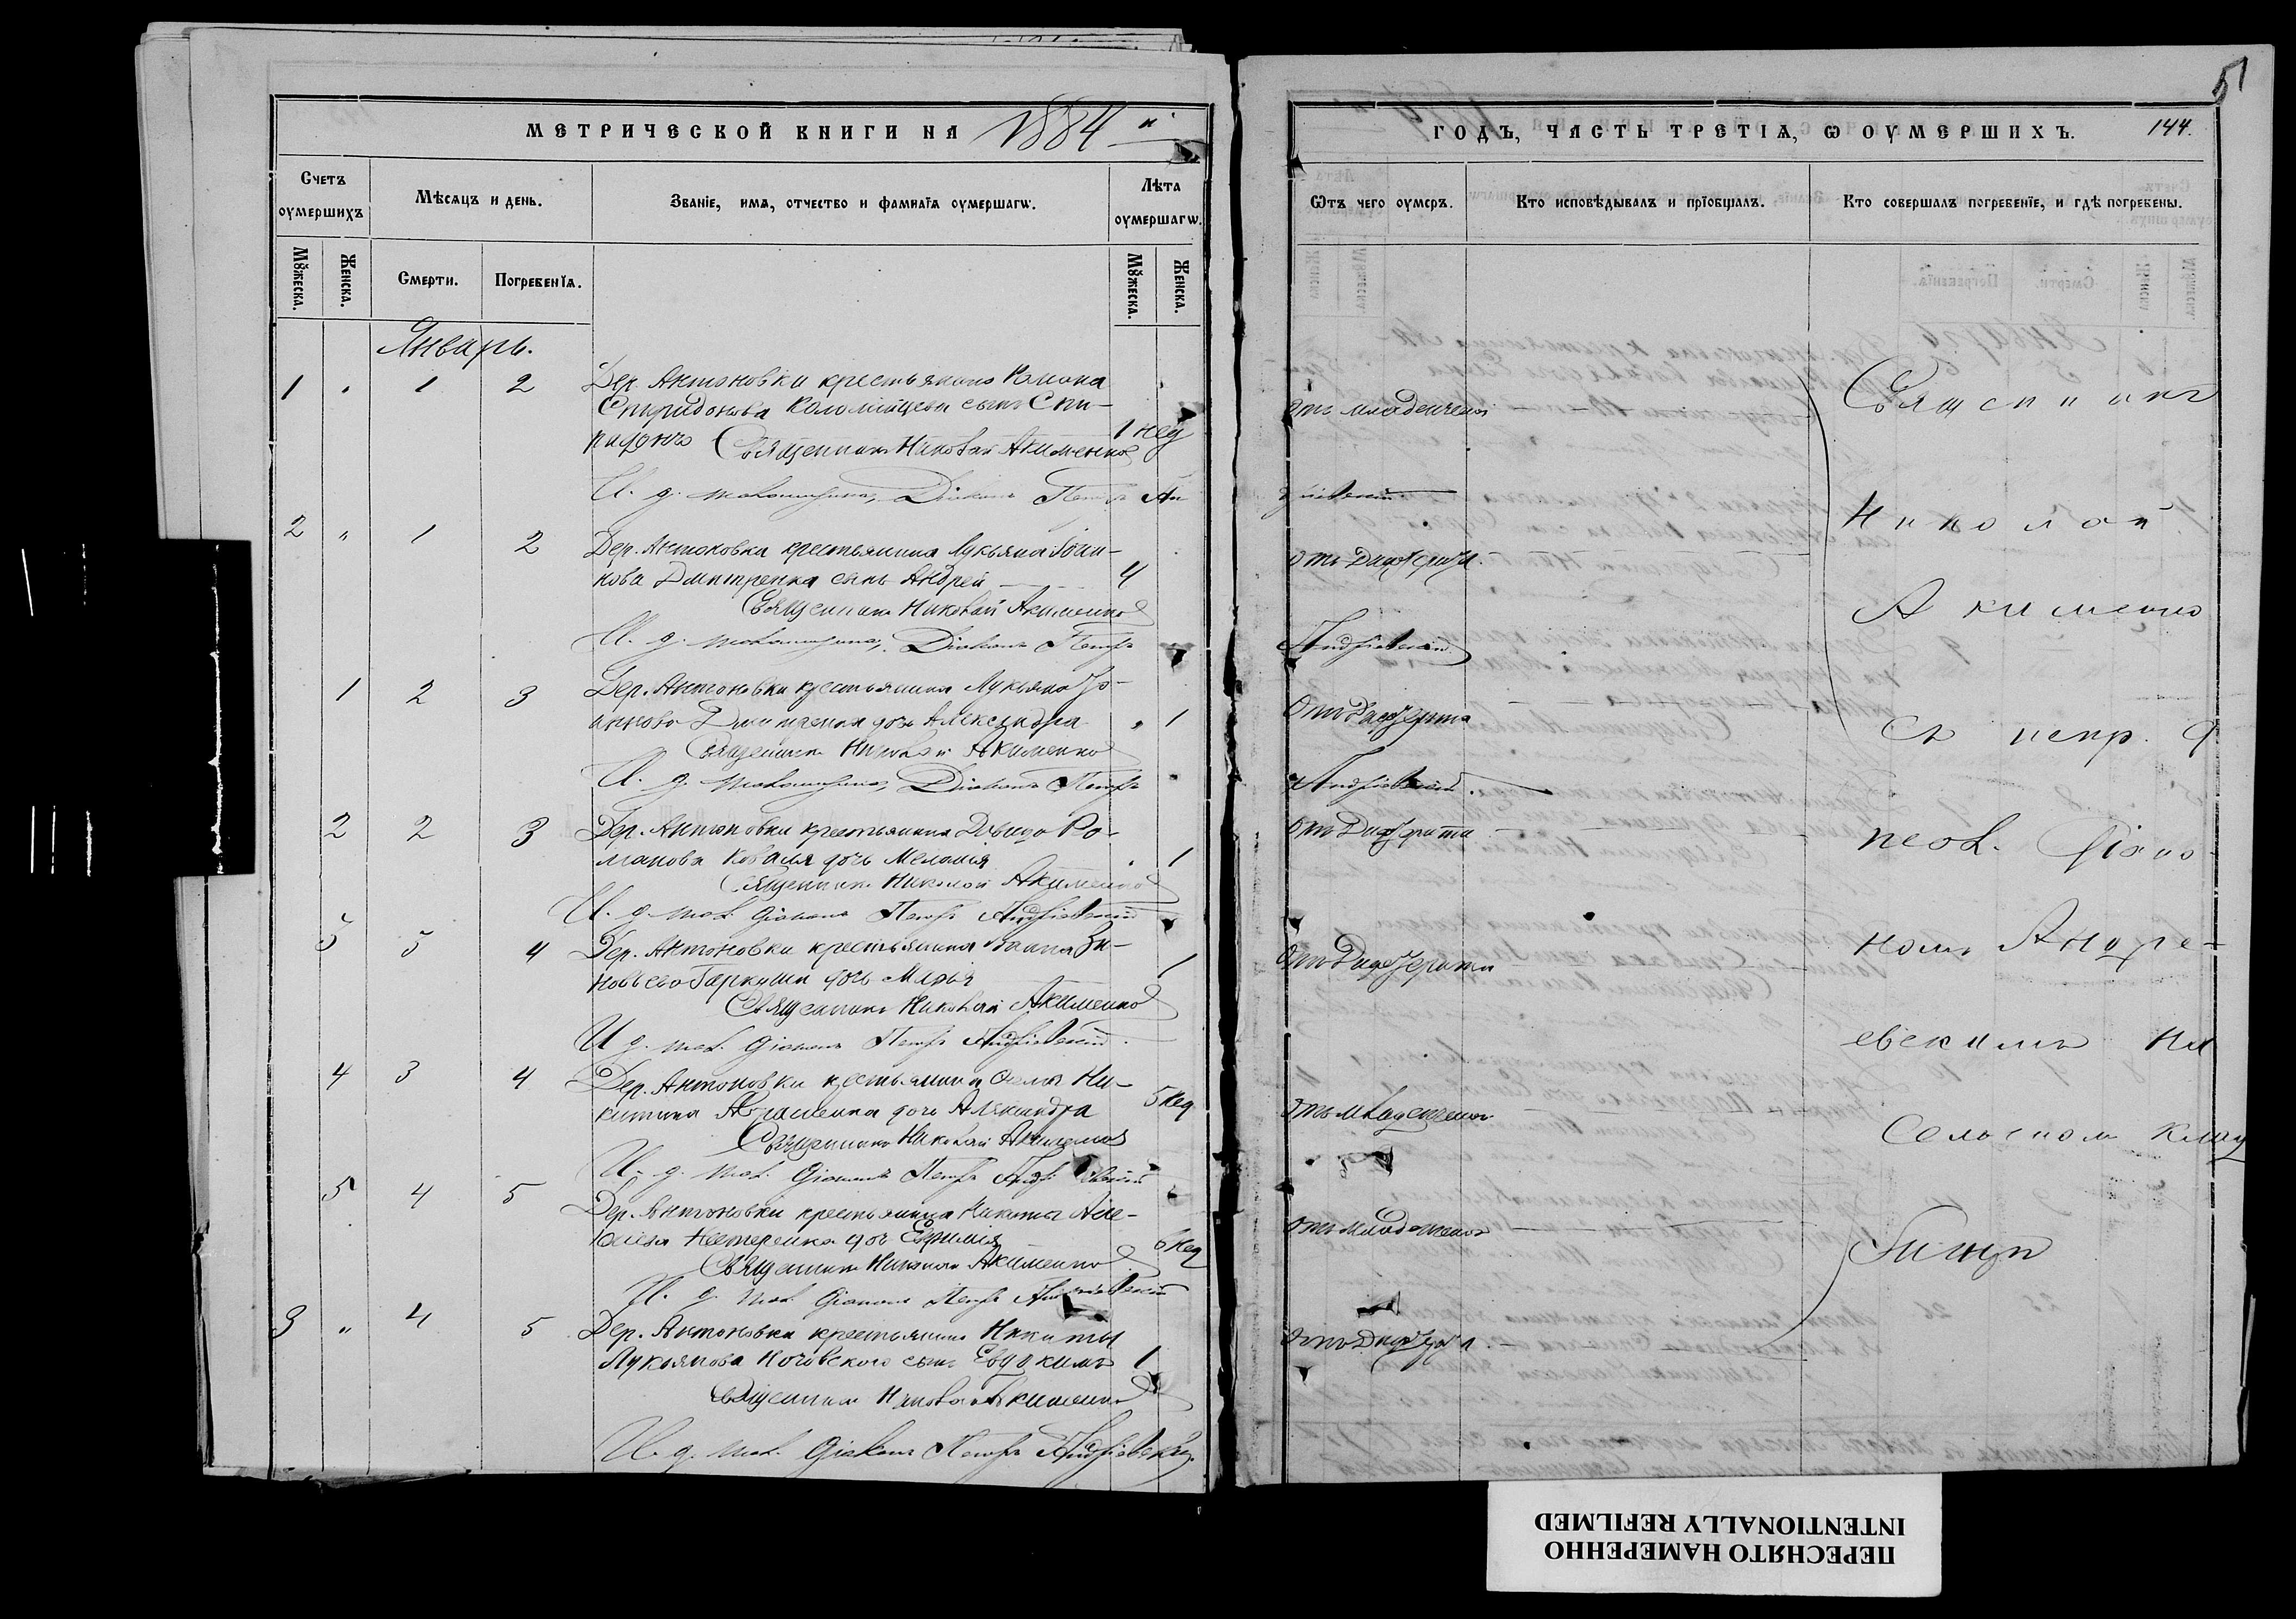 МЕТРИЧЕСКОЙ КНИГИ НА 1884 й
Счетъ оумершихъ
Мѣсяцъ и день.
Званіе, имя, отчество и фамилія оумершагѡ.
Лѣта оумершагѡ.
Мꙋжеска.
Женска.
Смерти.
Погребенїя.
Мꙋжеска.
Женска.
Январь.
1 " 1 2 Дер. Антоновки крестьянина Романа
Спиридонова Коломійцева сынъ Спи-
ридонъ 1 нед
Священникъ Николай Акименко
И. д. псаломщика, Діаконъ Петръ Ан
2 " 1 2 Дер. Антоновки крестьянина Лукьяна Іоан-
нова Дмитренка сынъ Андрей 4
Священникъ Николай Акименко
И. д. псаломщика, Діаконъ Петръ
1 2 3 Дер. Антоновки крестьянина Лукьяна Іо-
аннова Дмитренка дочь Александра " 1
Священникъ Николай Акименко
И. д. псаломщика, Діаконъ Петръ
2 2 3 Дер. Антоновки крестьянина Давида Ро-
манова Коваля дочь Меланія 1
Священникъ Николай Акименко
И. д. псал. Діаконъ Петръ Андріевскій
3 3 4 Дер. Антоновки крестьянина Іоанна Зи-
новьева Гаркуши дочь Марья 1
Священникъ Николай Акименко
И. д. псал. Діаконъ Петръ Андріевскій
4 3 4 Дер. Антоновки крестьянина Ни-
китина Авраменка дочь Александра 5 нед
Священникъ Николай Акименко
И. д. псал. Діаконъ Петръ Андріевскій
5 4 5 Дер. Антоновки крестьянина Никиты Але-
Нестеренка дочь Евфимія 6 нед
Священникъ Николай Акименко
И. д. псал. Діаконъ Петръ Андріевскій
3 " 4 5 Дер. Антоновки крестьянина Никиты
Лукьянова Кочовского сынъ Евдокимъ 1
Священникъ Николай Акименко
И. д. псал. Діаконъ Петръ Андріевскій
51
ГОДЪ, ЧАСТЬ ТРЕТІЯ, Ѡ ОУМЕРШИХЪ. 144.
Ѿтъ чего оумеръ.
Кто исповѣдывалъ и прїобщалъ.
Кто совершалъ погребенїе, и гдѣ погребены.
Отъ младенческой
дріевскій.
Отъ Дифтерита
Андріевскій
Отъ Дифтерита
Андріевскій.
Отъ Дифтерита
Отъ Дифтерита
Отъ младенческой
Отъ младенческой
Отъ Дифтерита
Священникъ
Николай
Акименко
съ испр. д.
псал. Діако-
номъ Андре-
евскимъ на
сельскомъ клад
бищѣ
ПЕРЕСНЯТО НАМЕРЕННО
INTENTIONALLY REFILMED